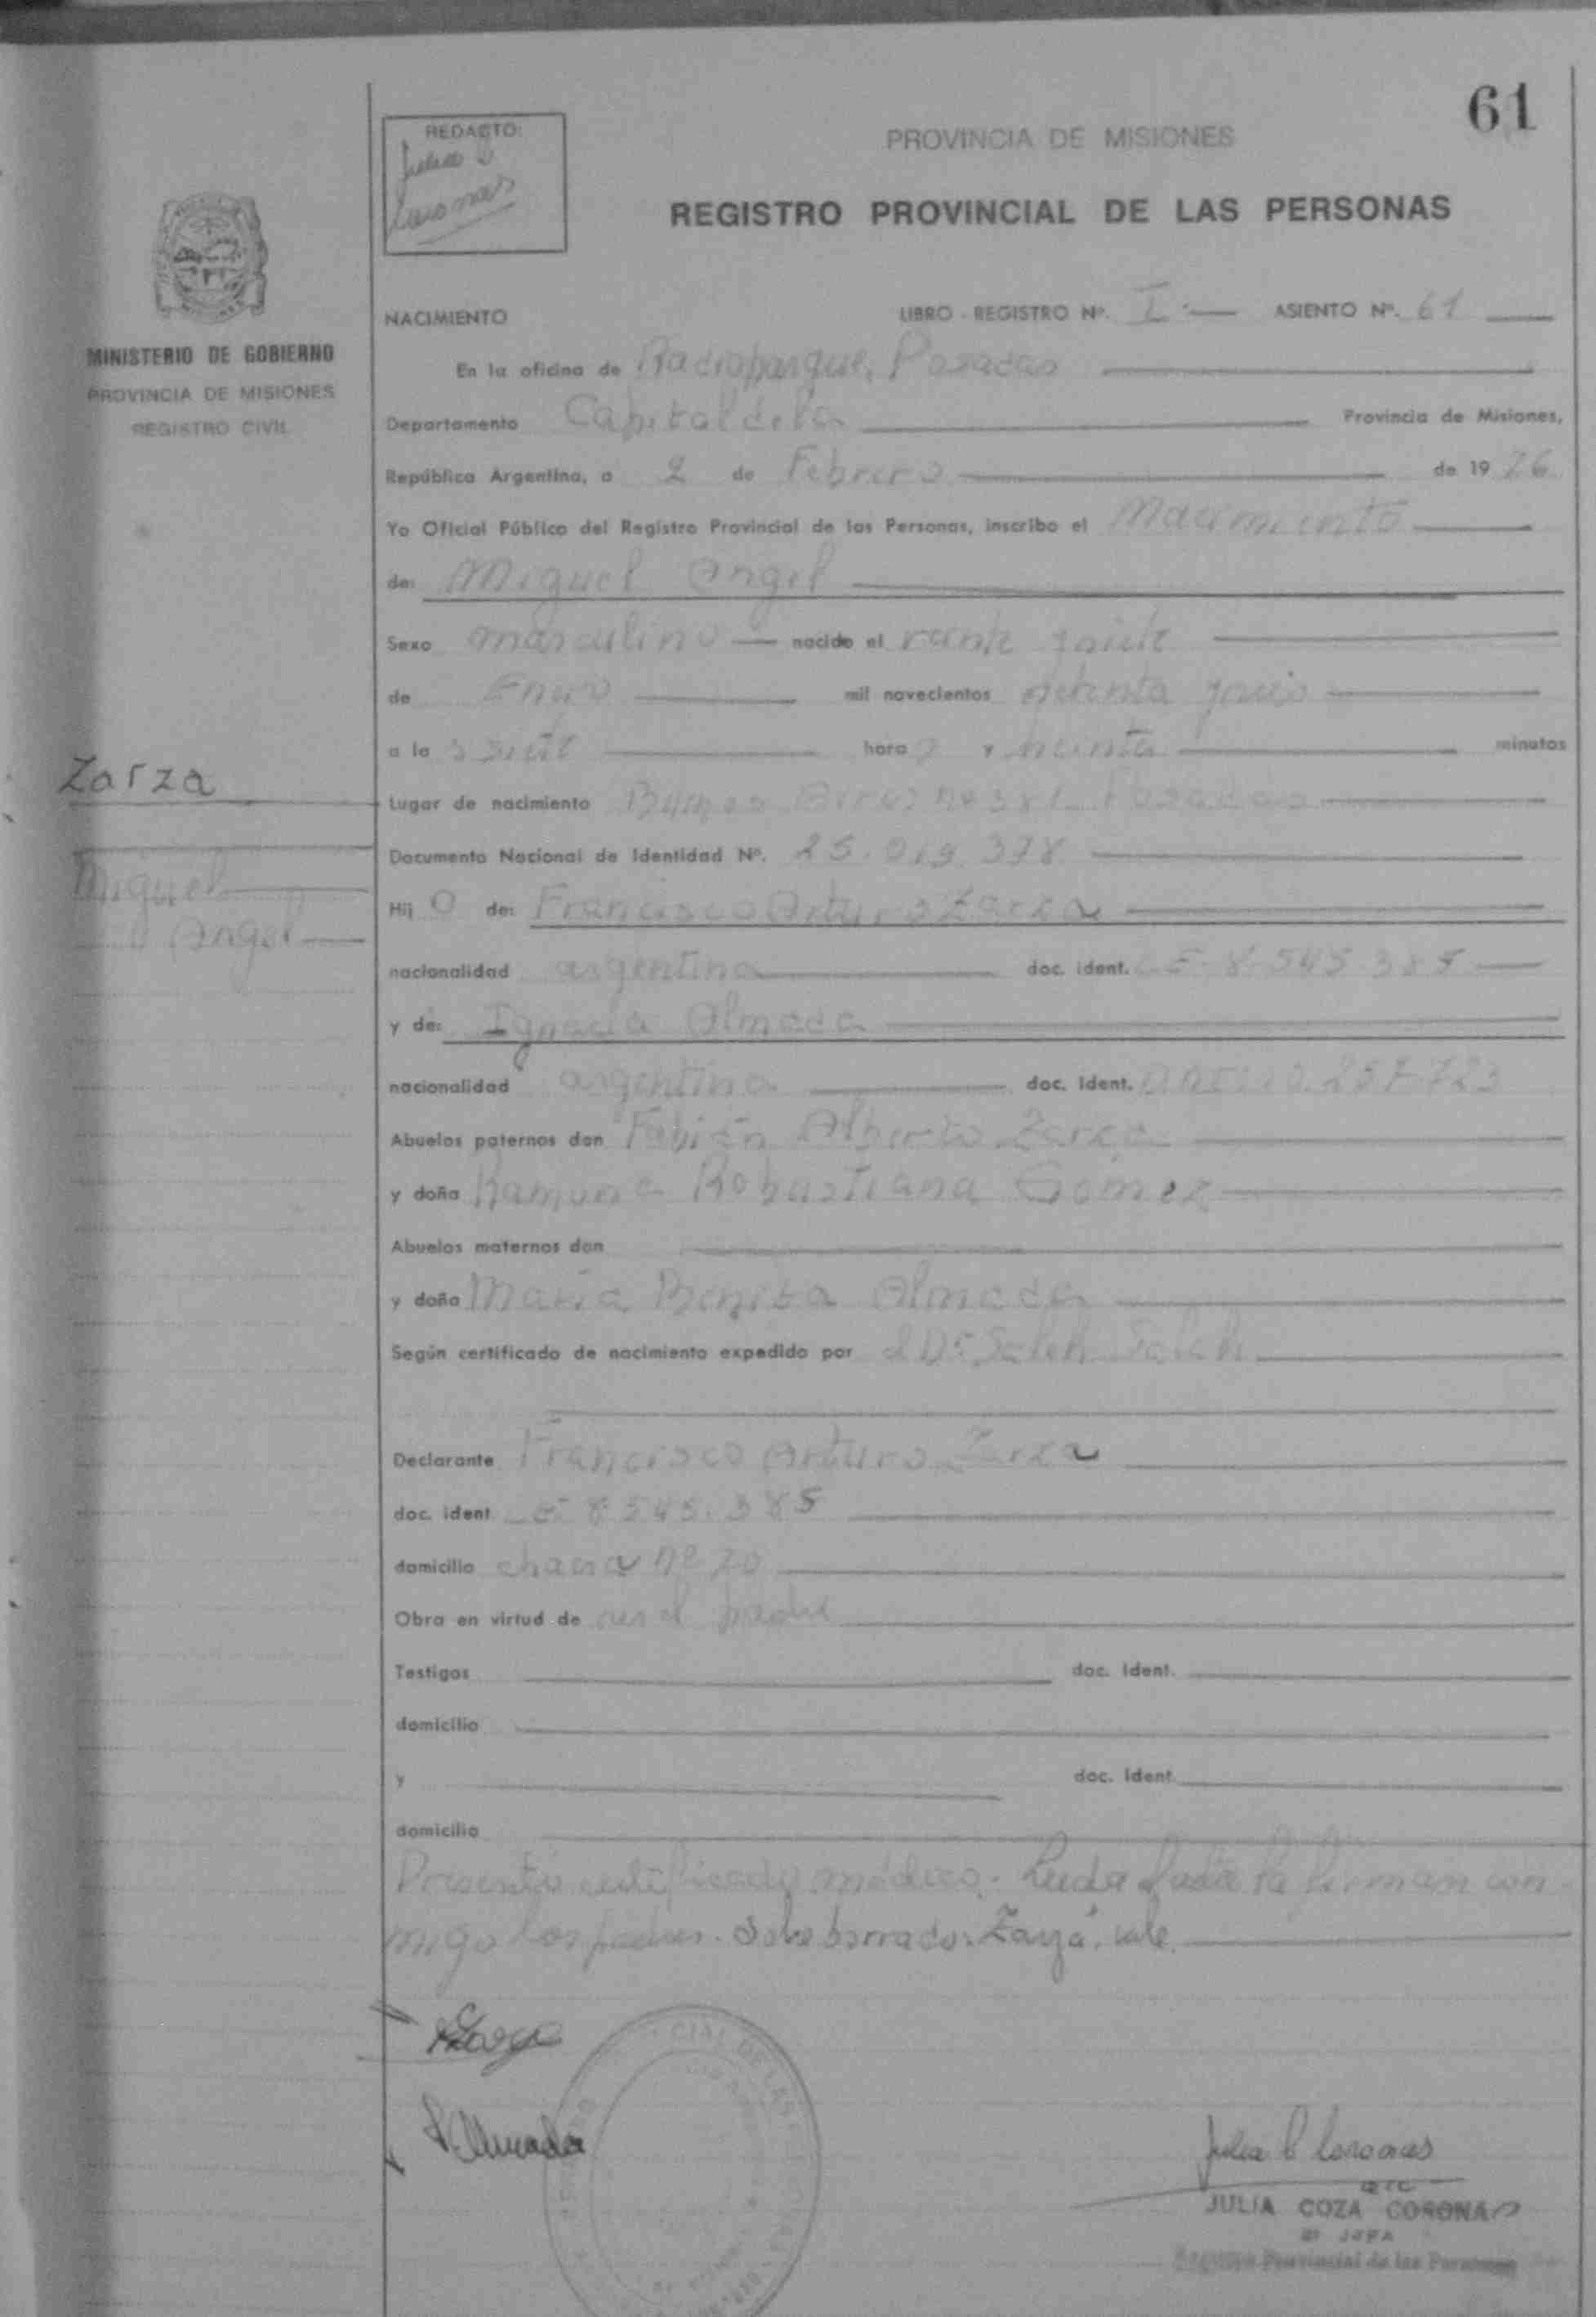 61
REDACTO:
PROVINCIA DE MISIONES
REGISTRO PROVINCIAL DE LAS PERSONAS
MINISTERIO DE GOBIERNO
PROVINCIA DE MISIONES
REGISTRO CIVIL
NACIMIENTO LIBRO - REGISTRO Nº. I ASIENTO Nº. 61
En la oficina de Radioparque, Posadas
Departamento Capital de la Provincia de Misiones,
República Argentina, a 2 de Febrero de 1976
Yo Oficial Público del Registro Provincial de las Personas, inscribo el Nacimiento
de: Miguel Angel
Sexo masculino nacido el veinte y siete
de Enero mil novecientos setenta y seis
a la s siete hora s y minutos
Zarza
Lugar de nacimiento Buenos Aires Posadas
Documento Nacional de Identidad Nº. 25.019.378
Miguel
Angel
Hij o de: Francisco Arturo Zarza
nacionalidad argentina doc. ident. LE 8.545.385
y de: Ignacia Almada
nacionalidad argentina doc. ident.
Abuelos paternos don Fabián Alberto Zarza
y doña Ramona Robustiana Gómez
Abuelos maternos don
y doña María Benita Almada
Según certificado de nacimiento expedido por el Dr. Saleh Salah
Declarante Francisco Arturo Zarza
doc. ident LE 8.545.385
domicilio chacra nº 70
Obra en virtud de ser el padre
Testigos doc. ident.
domicilio
y doc. ident
domicilio
Presentó certificado médico. Leida el acta la firman con-
migo los padres. Sobre borrado: Zarza. vale.
Almada
JULIA COZA CORONA
JEFA
Registro Provincial de las Personas